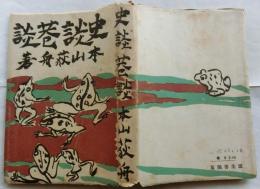 史談
巷談
本山荻舟著
史談巷談 本山荻舟